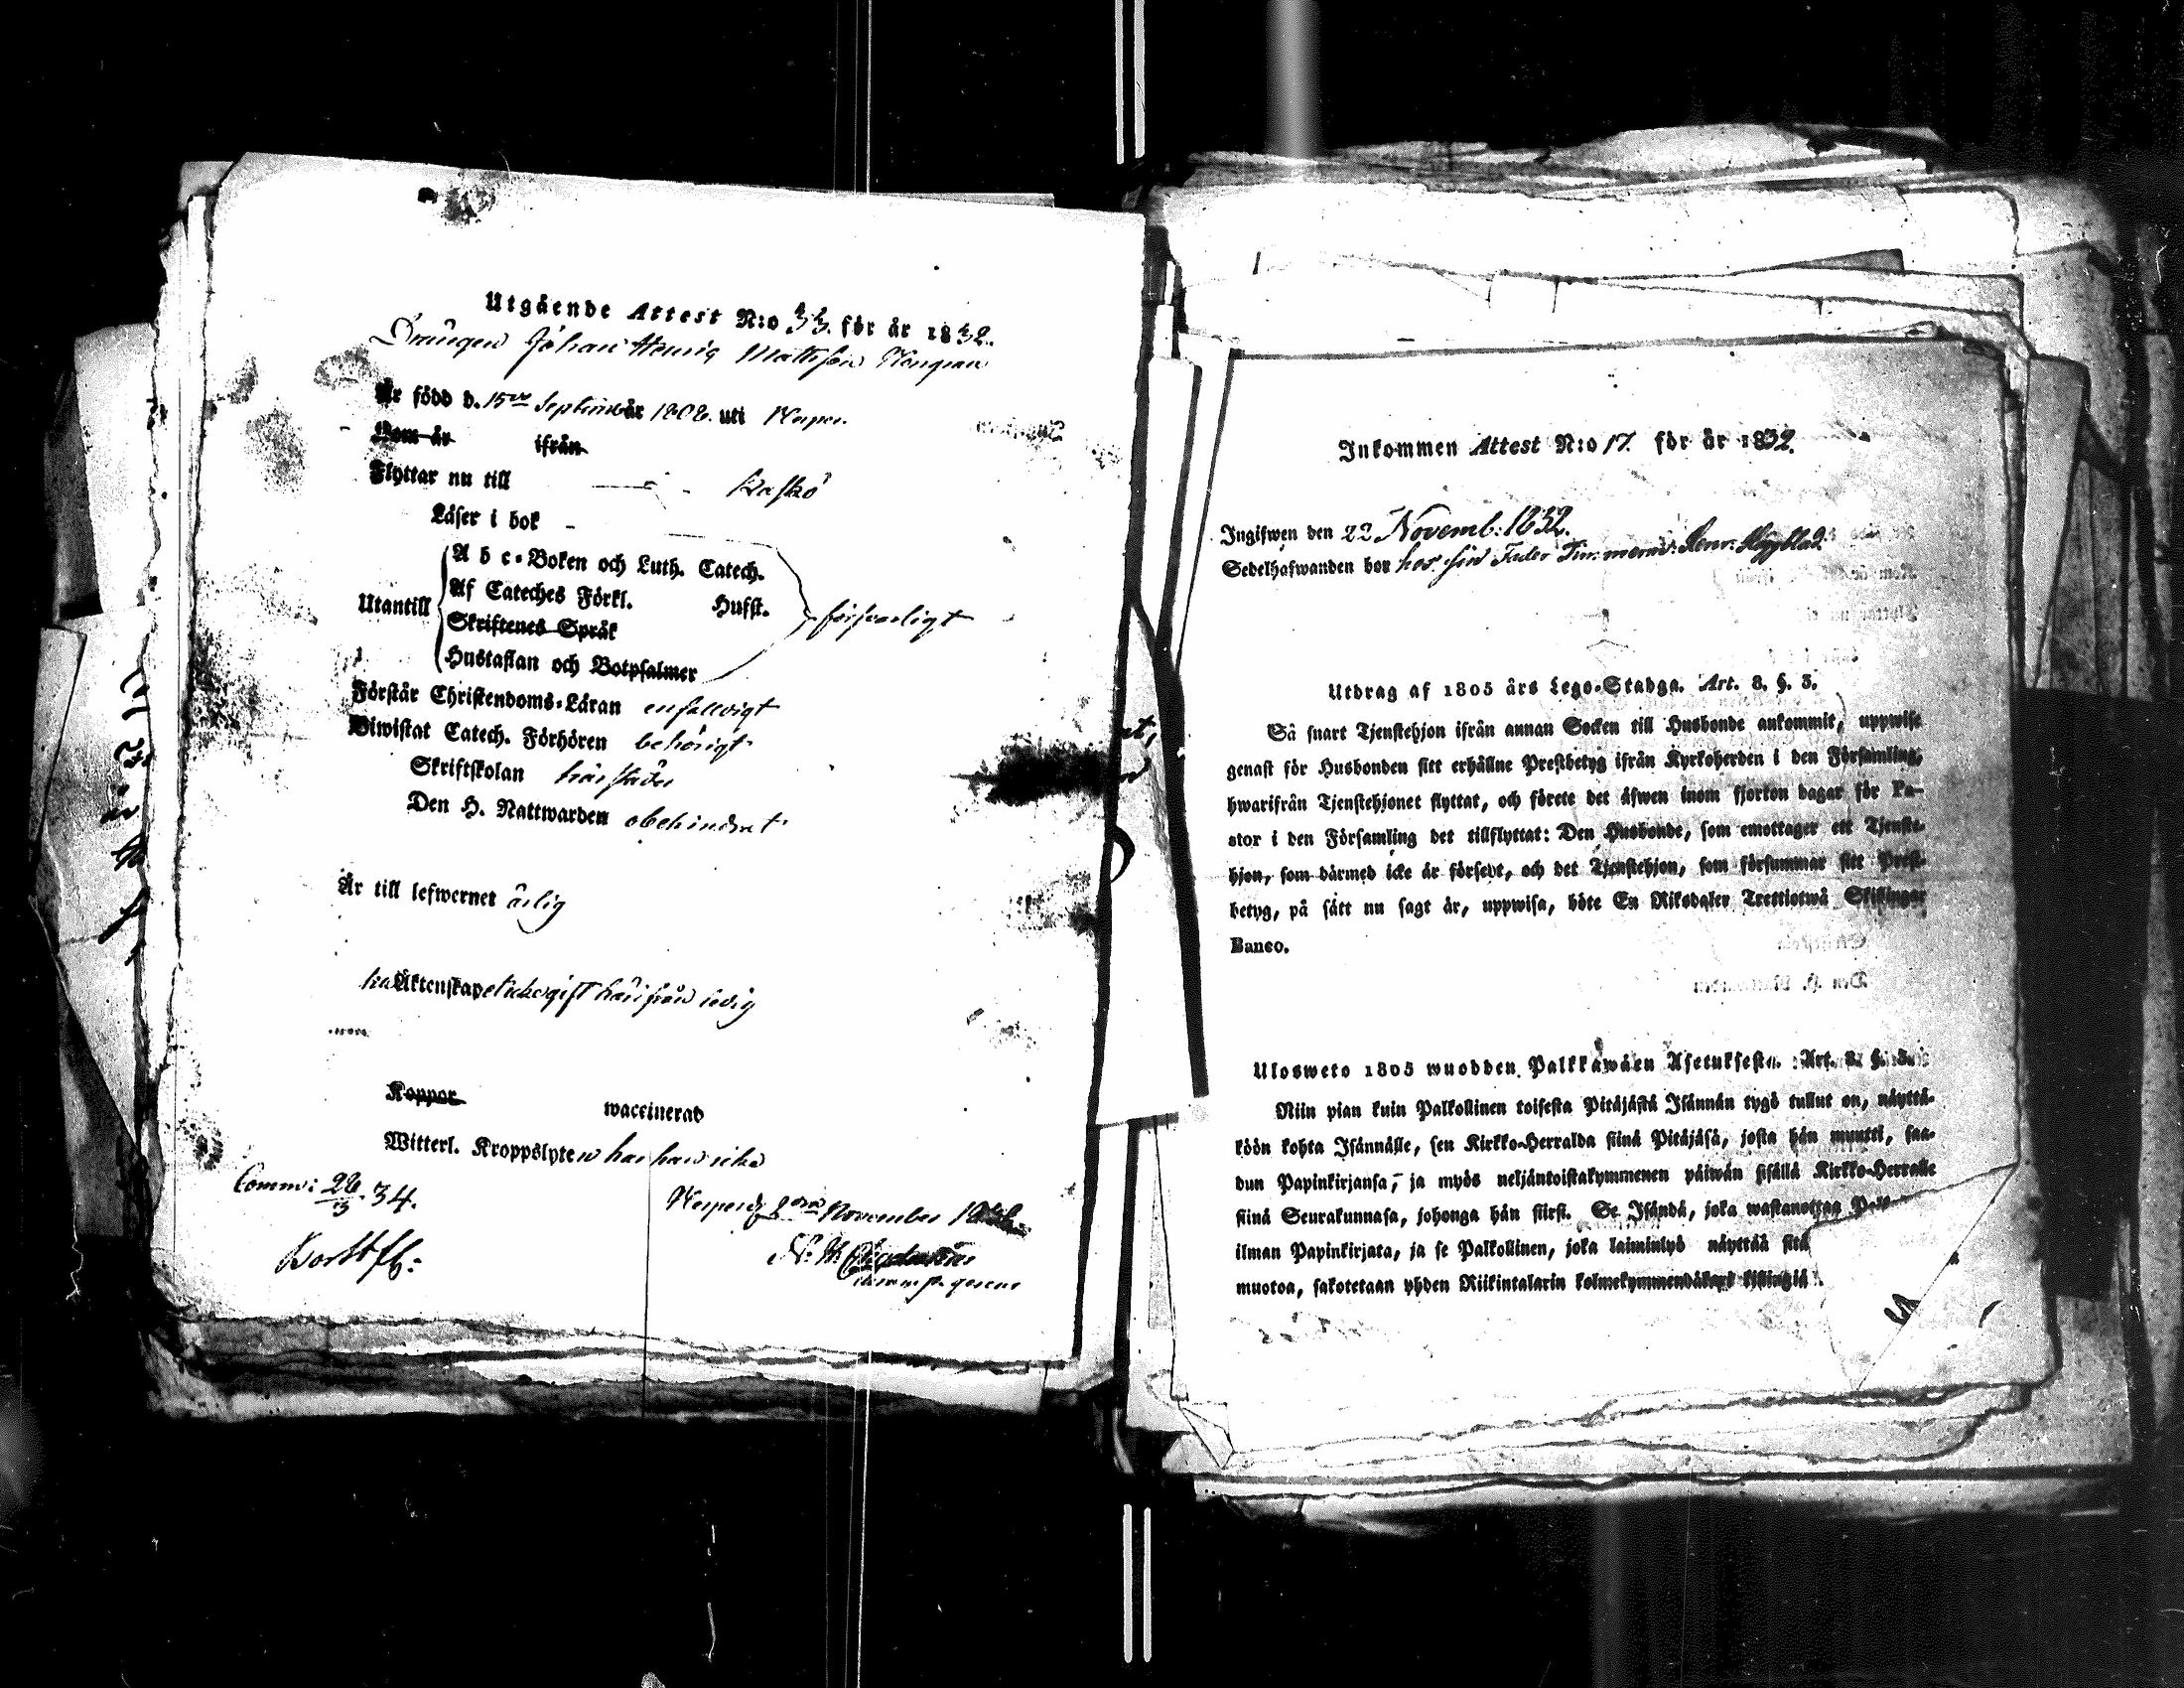 Utgående Attest N:o 33. för år 1832.
Drängen Johan Henric Mattsson
Är född d. 15de Septembr år 1808. uti Nerpes
Kom år ifrån
Flyttar nu till Kaskö
Läser i bok
Utantill
A b c-Boken och Luth. Catech.
Af Cateches Förkl. Husst.
Skriftenes Språk
Hustaflan och Botpsalmer
försvarligt
Förstår Christendoms-Läran enfalldigt
Biwistat Catech. Förhören behörigt
Skriftskolan härstädes
Den H. Nattwarden obehindrat
Är till lefwernet ärlig
Äktenskap härifrån ledig
Koppor waccinerad
Witterl. Kroppslyten har han icke
Comm: 26/3 34.
Nerpes d. November
Inkommen Attest N:o 17. för år 1832.
Ingifwen den 22 Novemb: 1832.
Sedelhafwanden bor hos sin Fader Timmerm:
Utdrag af 1805 års Lego-Stadga. Art. 8. §. 3.
Så snart Tjenstehjon ifrån annan Socken till Husbonde ankommit, uppwise
genast för Husbonden sitt erhållne Prestbetyg ifrån Kyrkoherden i den Församling,
hwarifrån Tjenstehjonet flyttat, och förete det äfwen inom fjorton dagar för Pa-
stor i den Församling det tillflyttat: Den Husbonde, som emottager ett Tjenste-
hjon, som därmed icke är försedt, och det Tjenstehjon, som försummar sitt Prest-
betyg, på sätt nu sagt är, uppwisa, böte En Riksdaler Trettiotwå Skillingar
Banco.
Ulosweto 1805 wuodden Palkkawäen Asetuksesta. Art. 8. §. 3.
Niin pian kuin Palkollinen toisesta Pitäjästä Isännän tygö tullut on, näyttä-
köön kohta Isännälle, sen Kirkko-Herralda siinä Pitäjäsä, josta hän muutti, saa-
dun Papinkirjansa, ja myös neljäntoistakymmenen päiwän sisällä Kirkko-Herralle
siinä Seurakunnasa, johonga hän siirsi. Se Isändä, joka wastanottaa
ilman Papinkirjata, ja se Palkollinen, joka laiminlyö näyttää sitä
muotoa, sakotetaan yhden Riikintalarin kolmekymmendäkaxi killingiä